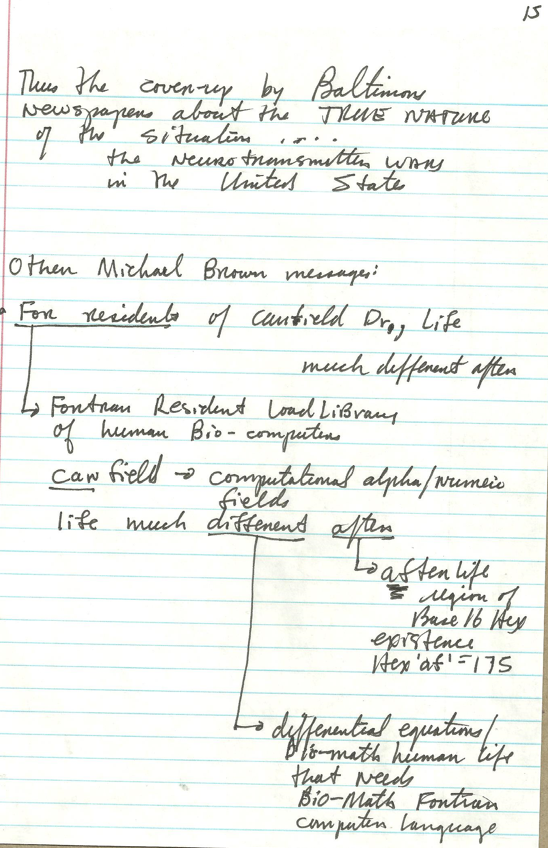 15
Thus the cover-up by Baltimore
Newspapers about the TRUE NATURE
of the situation ....
the Neurotransmitter WARS
in the United States
Other Michael Brown messages:
For residents of Canfield Dr., Life
much different after
Fortran Resident Load Library
of human Bio-computers
can field → computational alpha/numeric
fields
life much different after
after life
region of
Base 16 Hex
existence
Hex 'af' = 175
differential equations/
Bio-math human life
that needs
Bio-Math Fortran
computer language